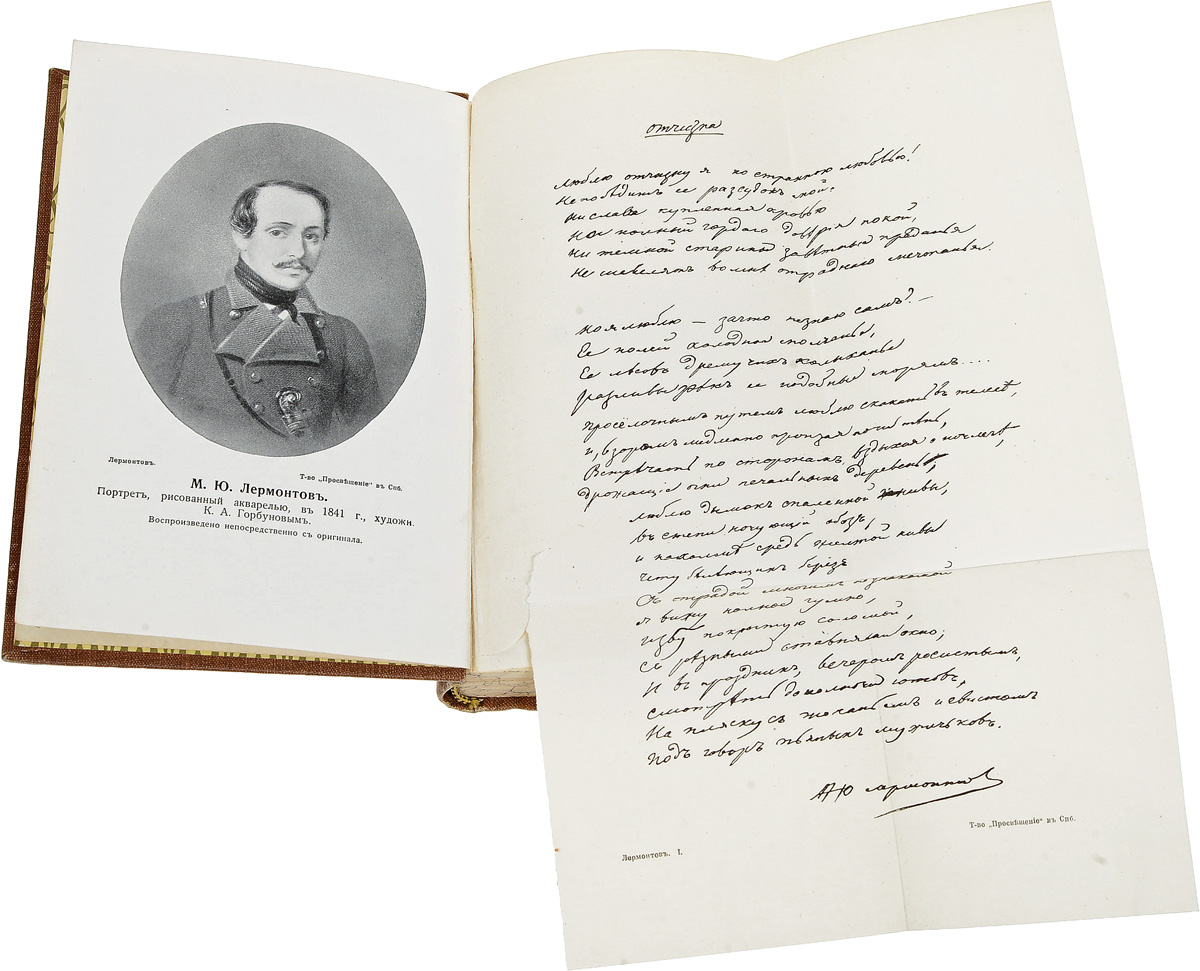 Лермонтовъ.
Т-во „Просвѣщеніе“ въ Спб.
М. Ю. Лермонтовъ.
Портретъ, рисованный акварелью, въ 1841 г., художн.
К. А. Горбуновымъ.
Воспроизведено непосредственно съ оригинала.
отчизна
Люблю отчизну я но странною любовью!
Непобѣдитъ ее разсудокъ мой.
ни слава купленная кровью
ни полный гордаго довѣрія покой,
ни темной старины завѣтныя преданья
не шевелятъ во мнѣ отраднаго мечтанья.
но я люблю — зачто незнаю самъ? —
Ее полей холодное молчанье,
Ее лѣсовъ дремучихъ колыханье
разливы рѣкъ ее подобные морямъ....
просёлочнымъ путемъ люблю скакать въ телегѣ,
и, взоромъ медленно пронзая ночи тѣнь,
Встрѣчать по сторонамъ, вздыхая о ночлегѣ,
дрожащіе огни печальныхъ деревень,
люблю дымокъ спаленной жнивы,
въ степи ночующій обозъ,
и на холмѣ средь желтой нивы
чету бѣлѣющихъ березъ
Съ отрадой многимъ незнакомой
я вижу полное гумно,
избу покрытую соломой,
съ рѣзными ставнями окно;
И въ праздникъ, вечеромъ росистымъ,
смотрѣть до полночи готовъ,
На пляску съ топаньемъ и свистомъ
подъ говоръ пьяныхъ мужичковъ.
М Ю Лермонтов
Т-во „Просвѣщеніе“ въ Спб.
Лермонтовъ. I.